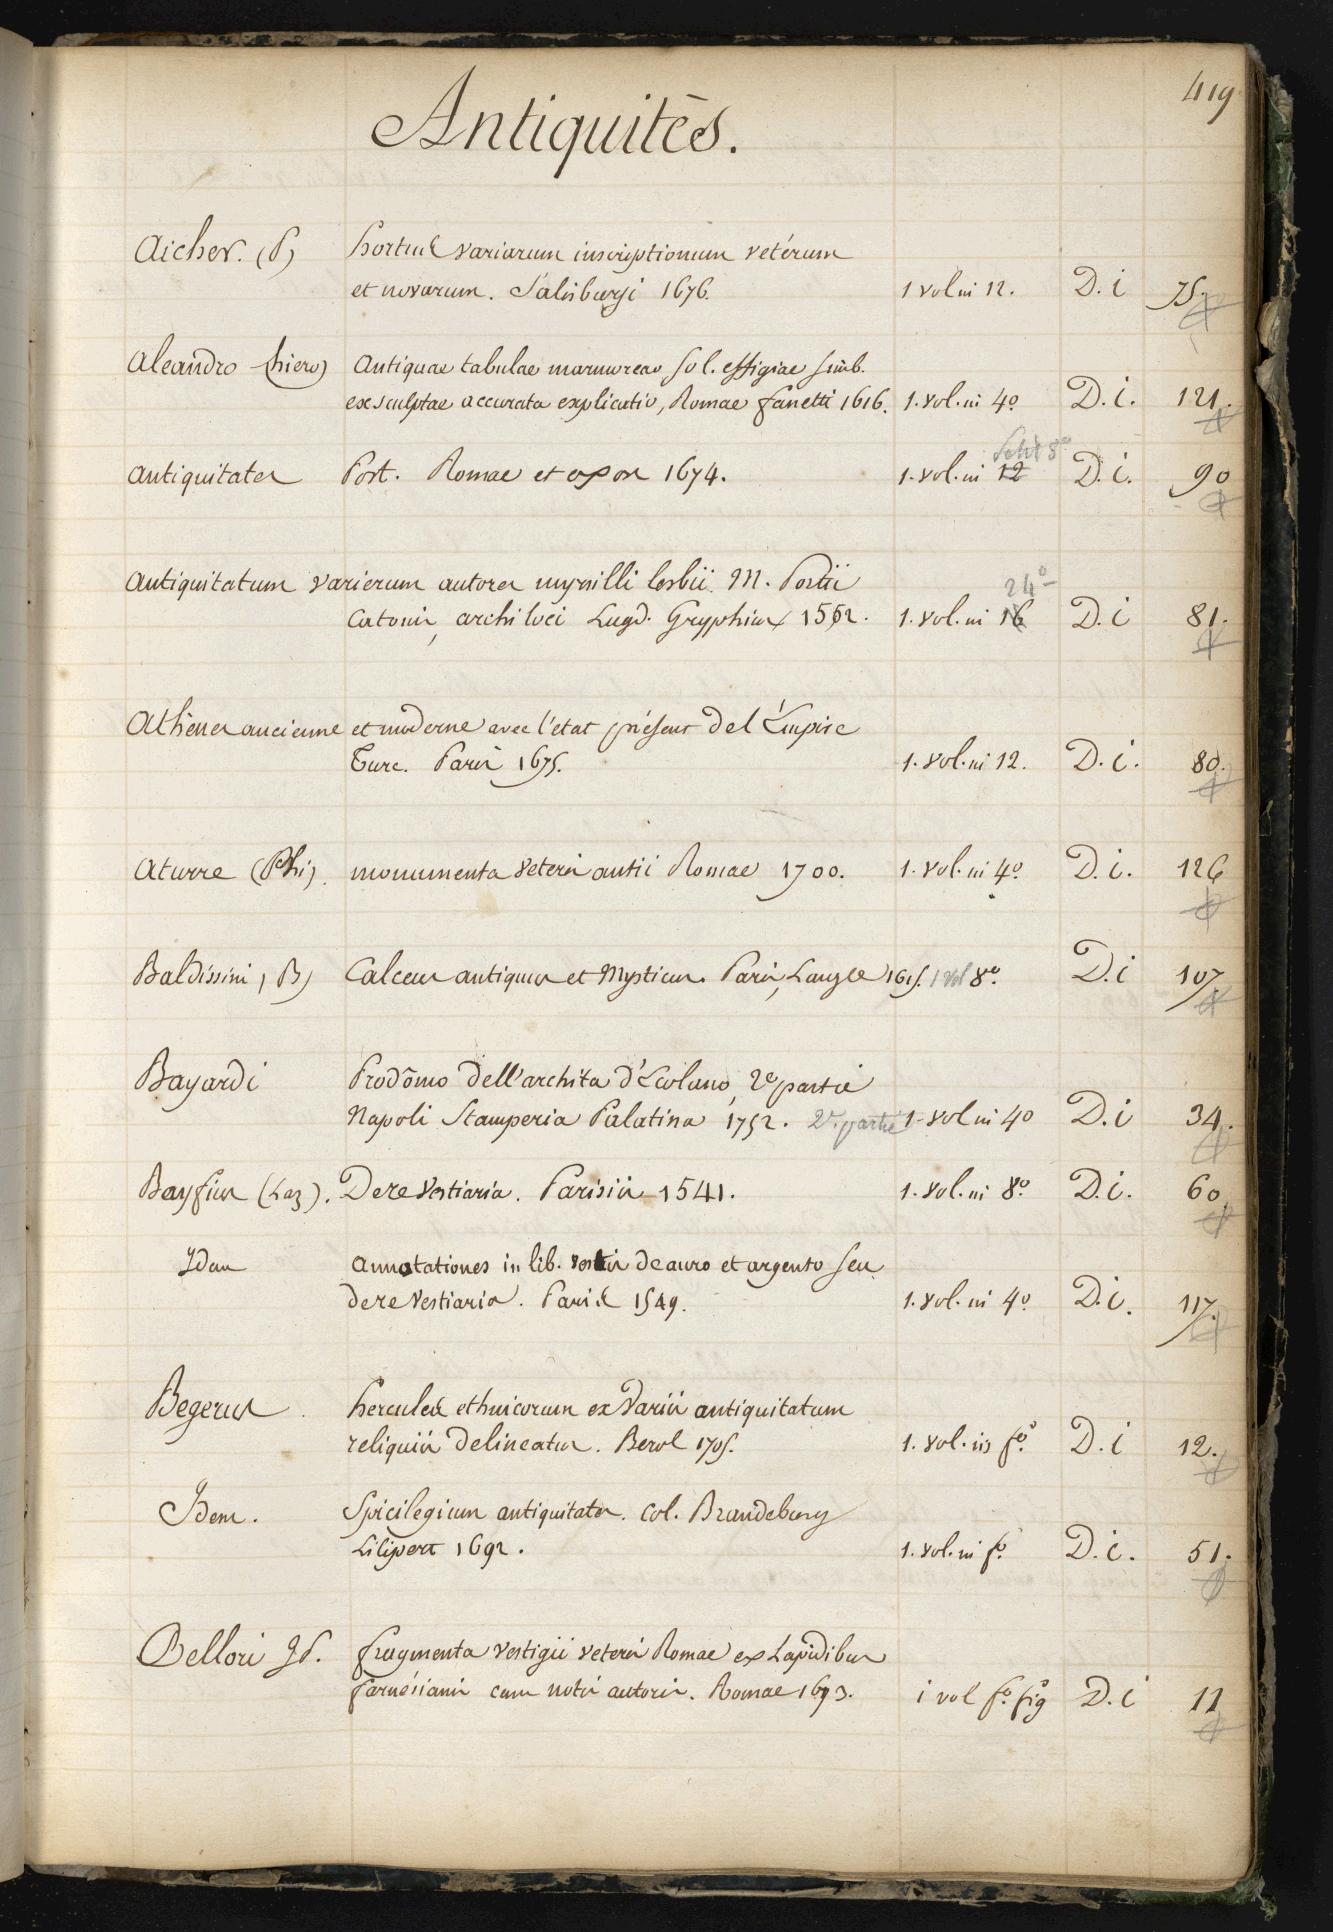 419
Antiquités.
Aicher. (P) hortus variarum inscriptionum vetérum
et novarum. Salisburgi 1676. 1 vol in 12. D. i 75.
Aleandro (hiero) Antiquae tabulae marmoreae sol. effigiae simb.
exsculptae accurata explicatio, Romae Zanetti 1616. 1. vol. in 4º D. i. 121.
8º
Antiquitates Port. Romae et oxon 1674. 1. vol. in 12 D. i. 90
24º
Antiquitatum varierum autores myrsilli lesbii. M. Portii
Catonis, archiloci Lugd. Gryphius 1552. 1. vol. in 16 D. i 81.
Athenes ancienne et moderne avec l'état présent de l'Empire
Turc. Paris 1675. 1. vol. in 12. D. i. 80.
Aturre (Phi). monumenta veteris antii Romae 1700. 1. vol. in 4º D. i. 126
Baldissini, B) Calceus antiquus et Mysticus. Paris, Langle 1615. 1 vol 8º. D. i 107.
Bayardi Prodômo dell'archita d'Ecolano, 2e partie
Napoli Stamperia Palatina 1752. 2e. partie 1. vol in 4º D. i 34.
Bayfius (Laz). De re vestiaria. Parisiis 1541. 1. vol. in 8º. D. i. 60.
Idem Annotationes in lib. vestis de auro et argento seu
de re vestiaria. Paris 1549. 1. vol. in 4º D. i. 117.
Begerus hercules ethnicorum ex variis antiquitatum
reliquiis delineatus. Berol 1705. 1. vol. in fº. D. i 12.
Idem. Spicilegium antiquitatis. Col. Brandeburg
Lilipert 1692. 1. vol. in fº. D. i. 51.
Bellori J P. fragmenta vestigii veteris Romae ex Lapidibus
farnésianis cum notis autoris. Romae 1693. i vol fº. fig D. i 11